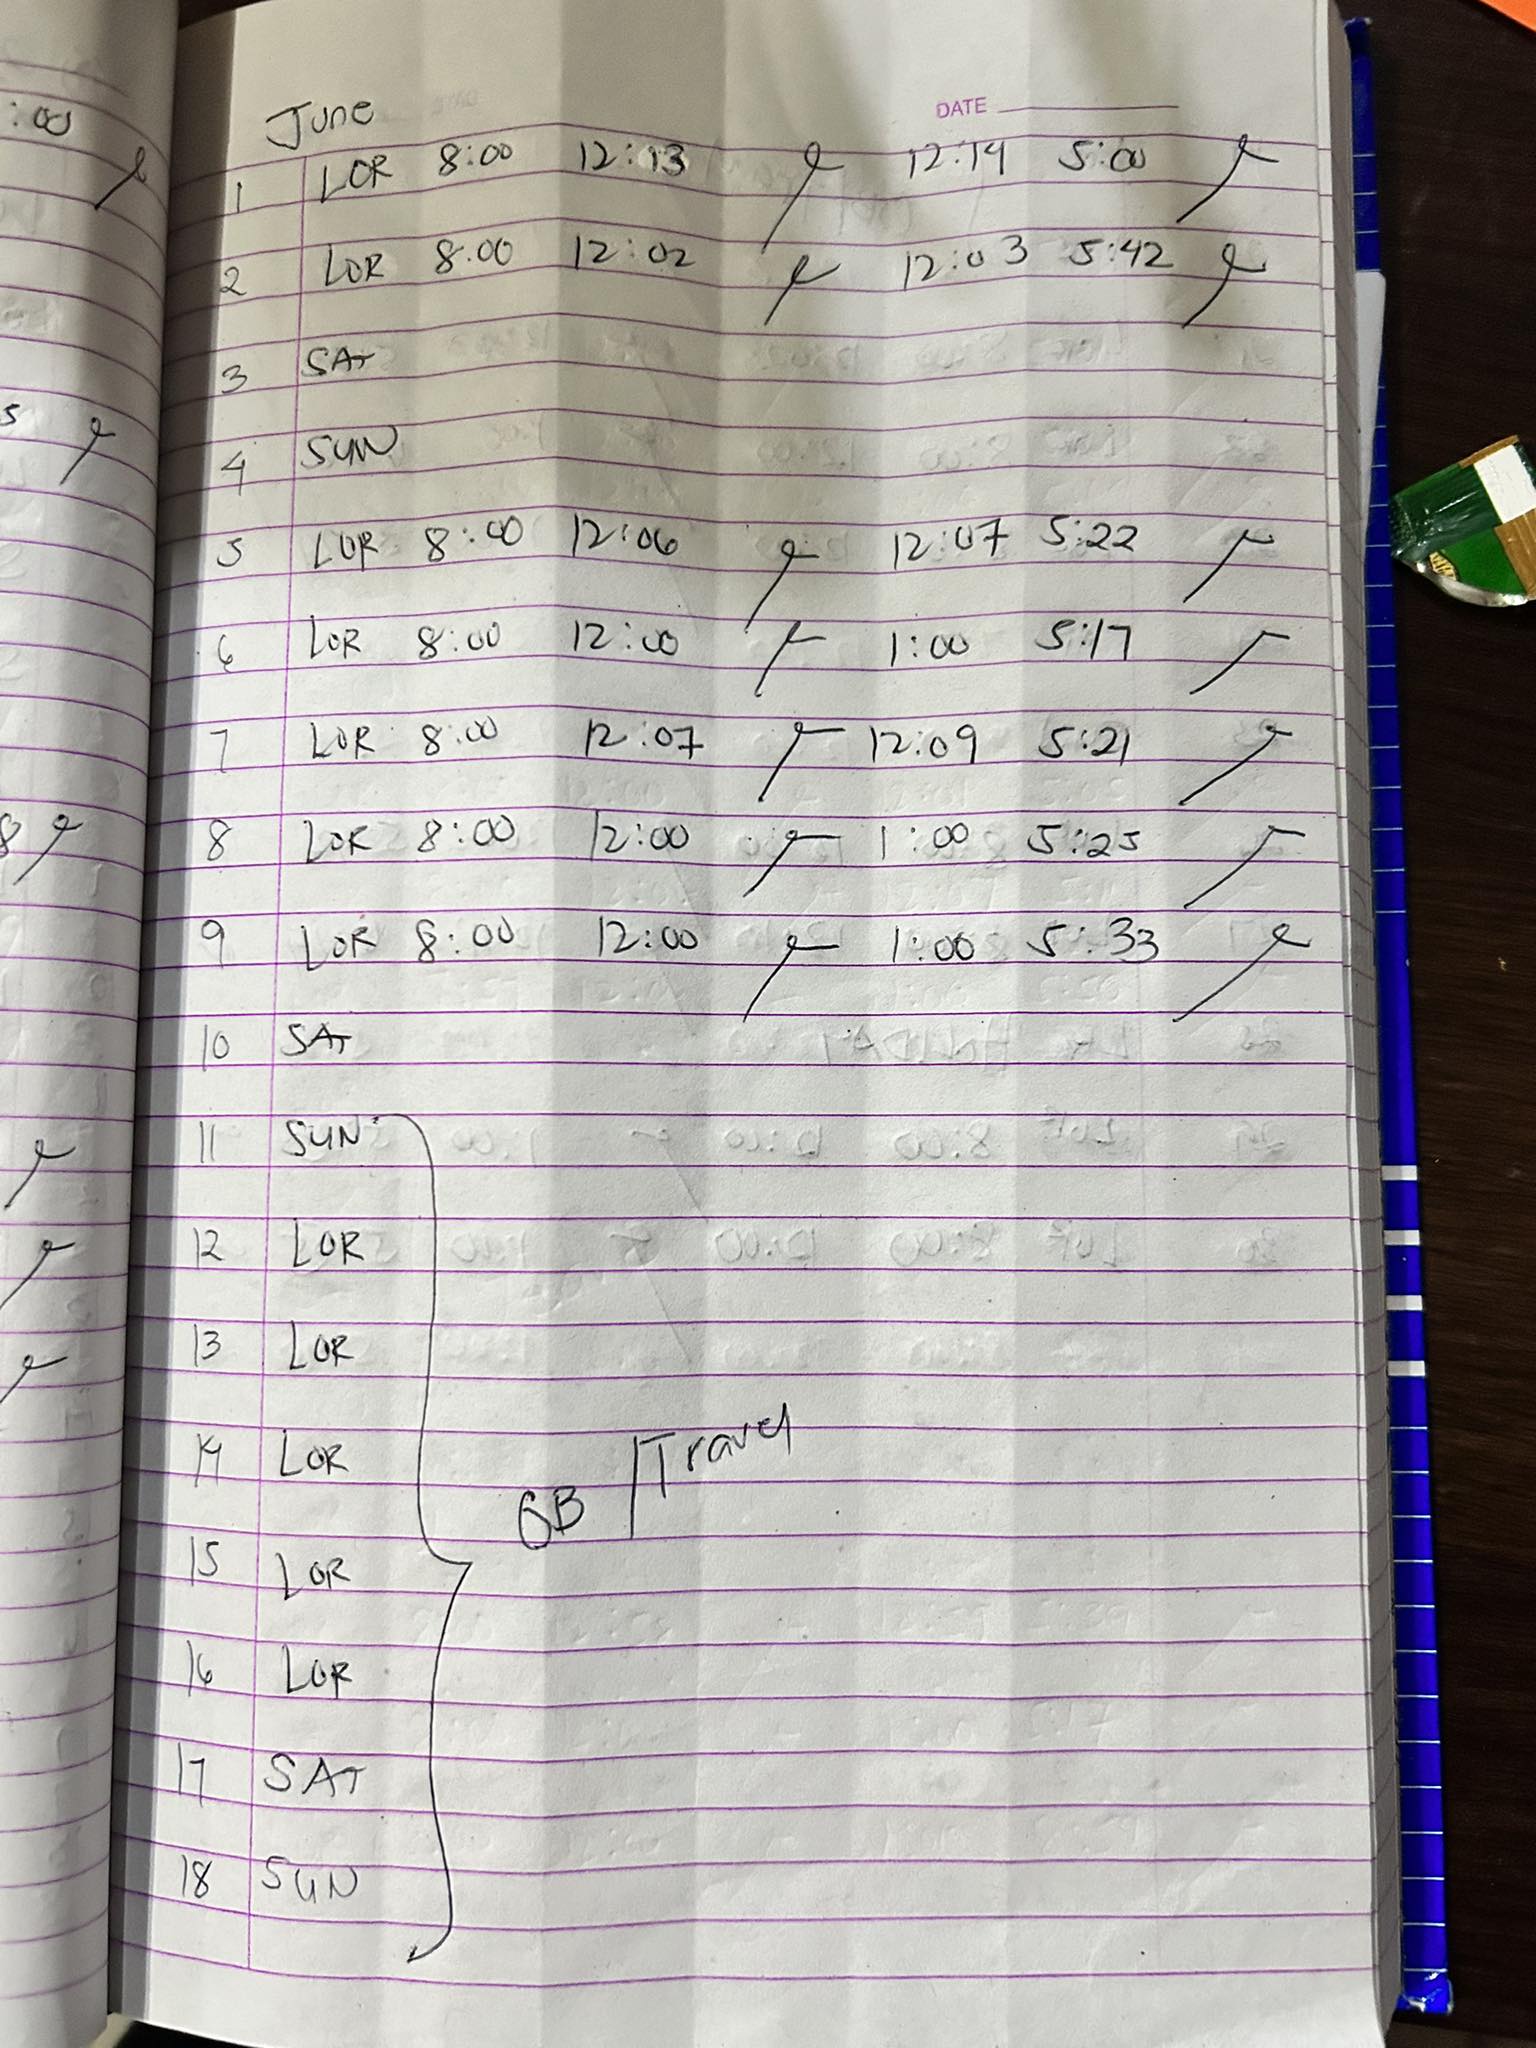 :00
June
DATE
1 LOR 8:00 12:13 12:14 5:00
2 LOR 8:00 12:02 12:03 5:42
3 SAT
4 SUN
5 LOR 8:00 12:06 12:07 5:22
6 LOR 8:00 12:00 1:00 5:17
7 LOR 8:00 12:07 12:09 5:21
8 LOR 8:00 12:00 1:00 5:25
9 LOR 8:00 12:00 1:00 5:33
10 SAT
11 SUN
12 LOR
13 LOR
14 LOR
OB / Travel
15 LOR
16 LOR
17 SAT
18 SUN